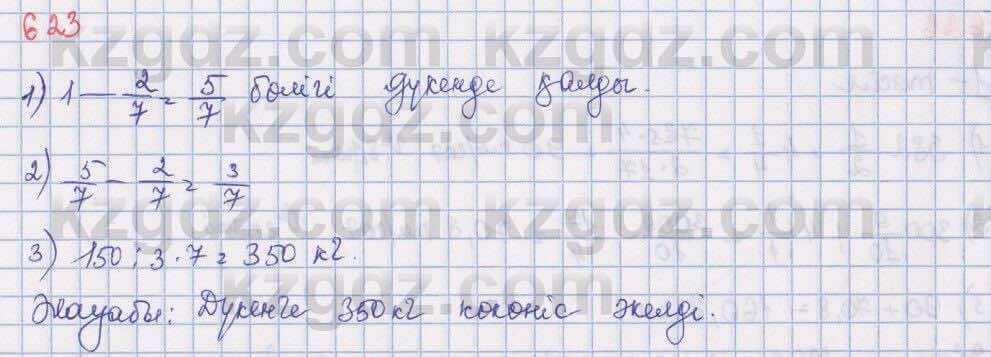 623
kzgdz.com kzgdz.com
1) 1 - 2/7 = 5/7 бөлігі дүкенде қалды.
kzgdz.com
2) 5/7 - 2/7 = 3/7
kzgdz.com kzgdz.com
3) 150 : 3 · 7 = 350 кг.
Жауабы: Дүкенге 350 кг көкөніс әкелді.
kzgdz.com